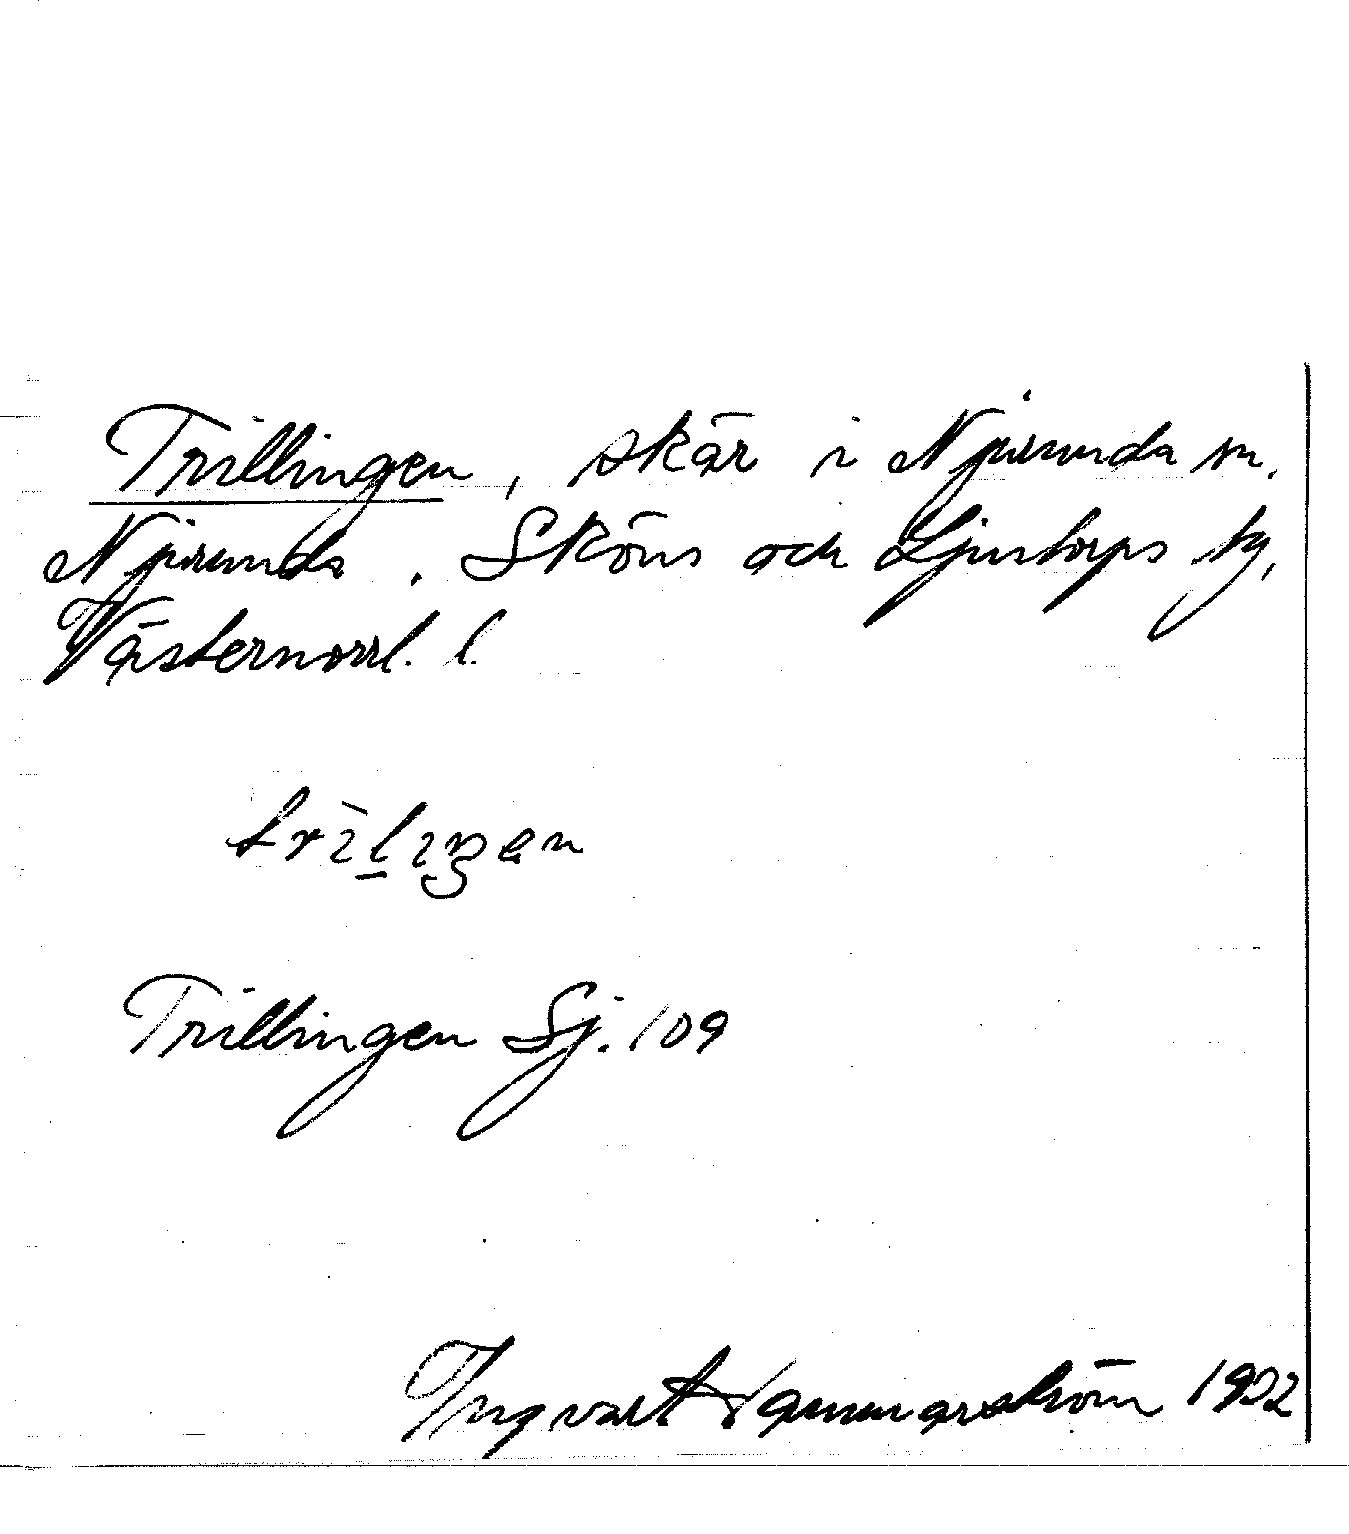 Trillingen, skär i Njurunda sn.
Njurunda, Sköns och Ljustorps tg,
Västernorrl. l.
trìlıŋen
Trillingen Sj. 109
Ingvart Hammarström 1932